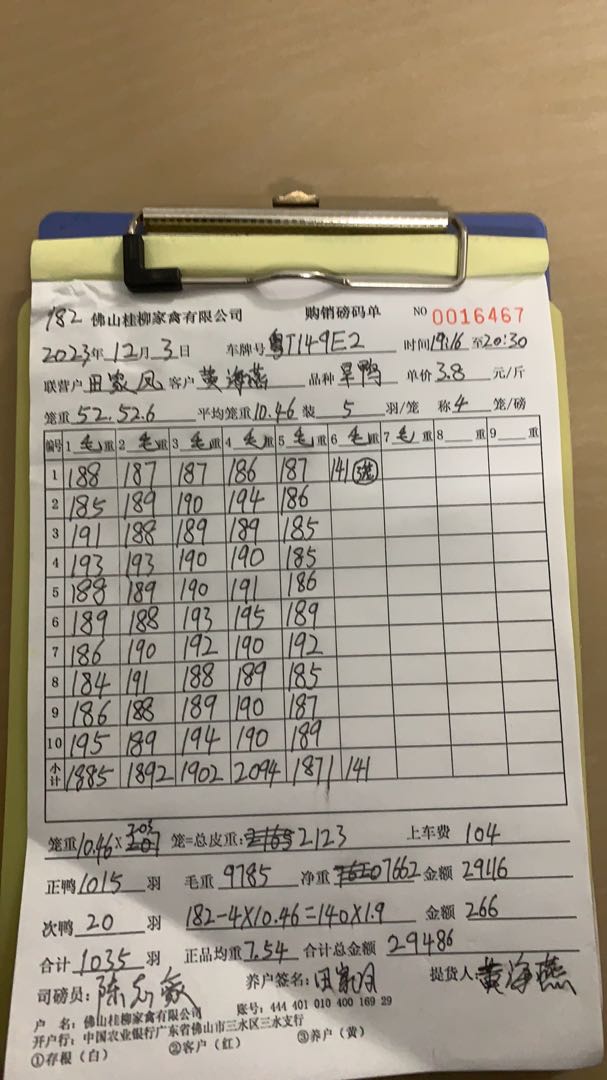 182 佛山桂柳家禽有限公司 购销磅码单 NO 0016467
2023年12月3日 车牌号 粤T149E2 时间19:16至20:30
联营户 田家凤 客户 黄海燕 品种 旱鸭 单价3.8元/斤
笼重52.52.6 平均笼重10.46装 5 羽/笼 称4笼/磅
编号 1毛重 2毛重 3毛重 4毛重 5毛重 6毛重 7毛重 8 重 9 重
1 188 187 187 186 187 141
2 185 189 190 194 186
3 191 188 189 189 185
4 193 193 190 190 185
5 188 189 190 191 186
6 189 188 193 195 189
7 186 190 192 190 192
8 184 191 188 189 185
9 186 188 189 190 187
10 195 189 194 190 189
小计 1885 1892 1902 2094 1871 141
笼重10.46×203笼=总皮重:2123 上车费 104
正鸭1015羽 毛重 9785 净重 7662 金额 29116
次鸭 20 羽 182-4×10.46=140×1.9 金额 266
合计1035羽 正品均重7.54 合计总金额 29486
司磅员:陈 养户签名:田家凤 提货人:黄海燕
户 名:佛山桂柳家禽有限公司 账号:444 401 010 400 169 29
开户行:中国农业银行广东省佛山市三水区三水支行
①存根(白) ②客户(红) ③养户(黄)